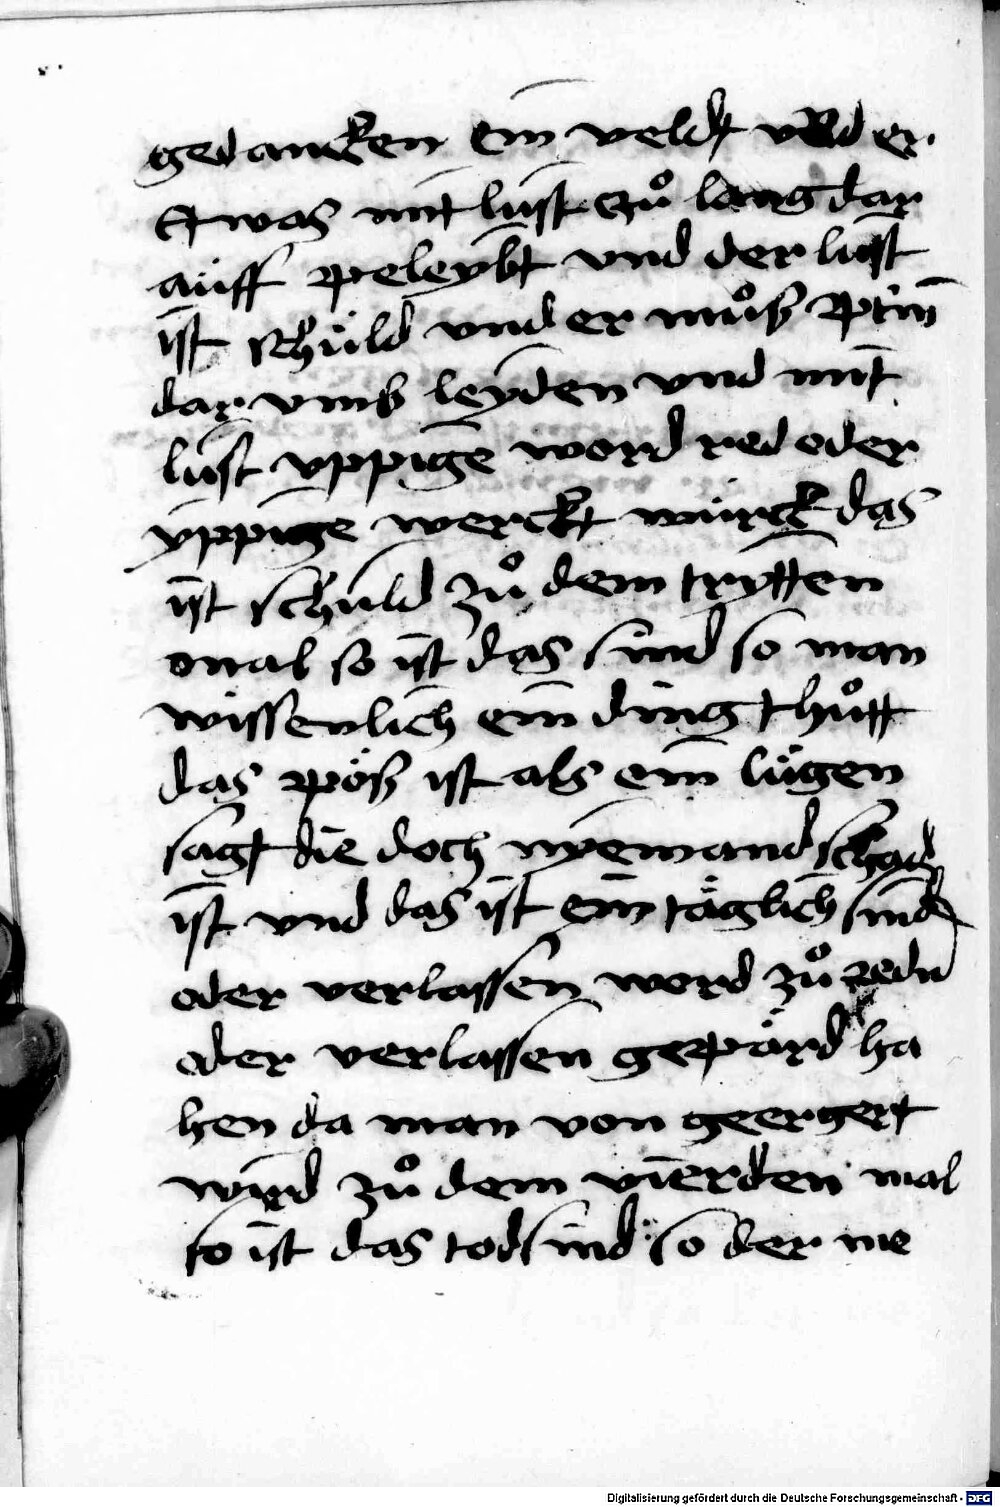 gedancken ein veldt vnd er
etwas mit lust zuͦ lang dar
auff peleybt vnd der lust
ist schuld vnd er muͦß
dar vmb leyden vnd mit
lust vppige word red oder
vppige werckt würck das
ist schuld zuͦ dem trytten
mal so ist das sind so man
wissenlich ein ding thuͦtt
das pöß ist als ein lügen
sagt die doch nyemand schad
ist vnd das ist ein täglich sind
oder verlassen word zuͦ redn
oder verlassen gepärd ha
hen da man von geergert
wird zuͦ dem vierden mal
so ist das todsind so der me
Digitalisierung gefördert durch die Deutsche Forschungsgemeinschaft - DFG